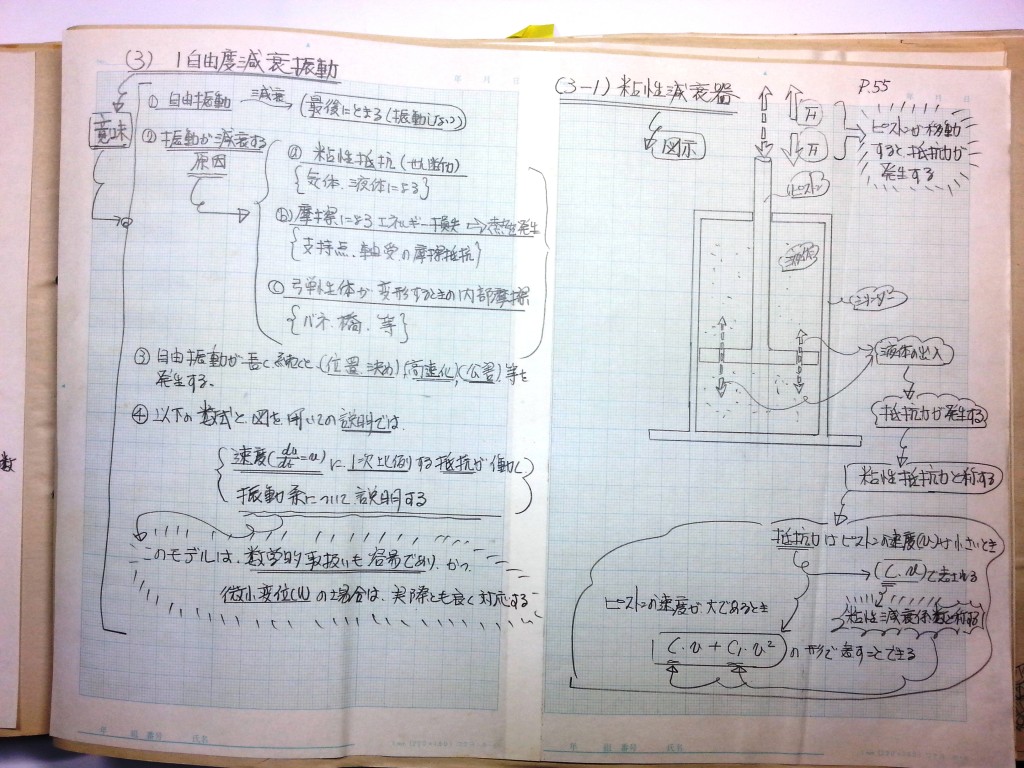 (3) 1自由度減衰振動
意味
① 自由振動 減衰 (最後にとまる(振動しない))
② 振動が減衰する
原因
ⓐ 粘性抵抗(せん断力)
{気体、液体による}
ⓑ 摩擦によるエネルギー損失⇒熱発生
{支持点、軸受の摩擦抵抗}
ⓒ 弓単性体が変形するときの内部摩擦
{バネ、橋、等}
③ 自由振動が長く続くと、(位置決め)、(高速化)、(公害)、等を
発生する。
④ 以下の数式と図を用いての説明では、
速度(du/dt=u)に1次比例する抵抗が働く
振動系について説明する
このモデルは、数学的取扱いも容易であり、かつ
微小変位(u)の場合は、実際とも良く対応する
(3-1) 粘性減衰器
P.55
図示
力
力
ピストンが移動
すると抵抗力が
発生する
ピストン
液体
シリンダー
液体の出入
抵抗力が発生する
粘性抵抗力と称する
抵抗力はピストンの速度(u)は小さいとき
(C・u)で表される
粘性減衰係数と称する
ピストンの速度が大であるとき
C・u+C₁・u²の形で表すことできる
年 月 日
年 月 日
年 組 番号 氏名
年 組 番号 氏名
数